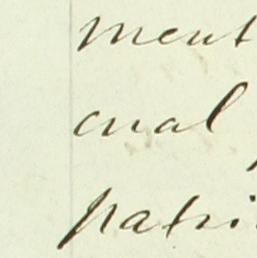 ment
cual
patri